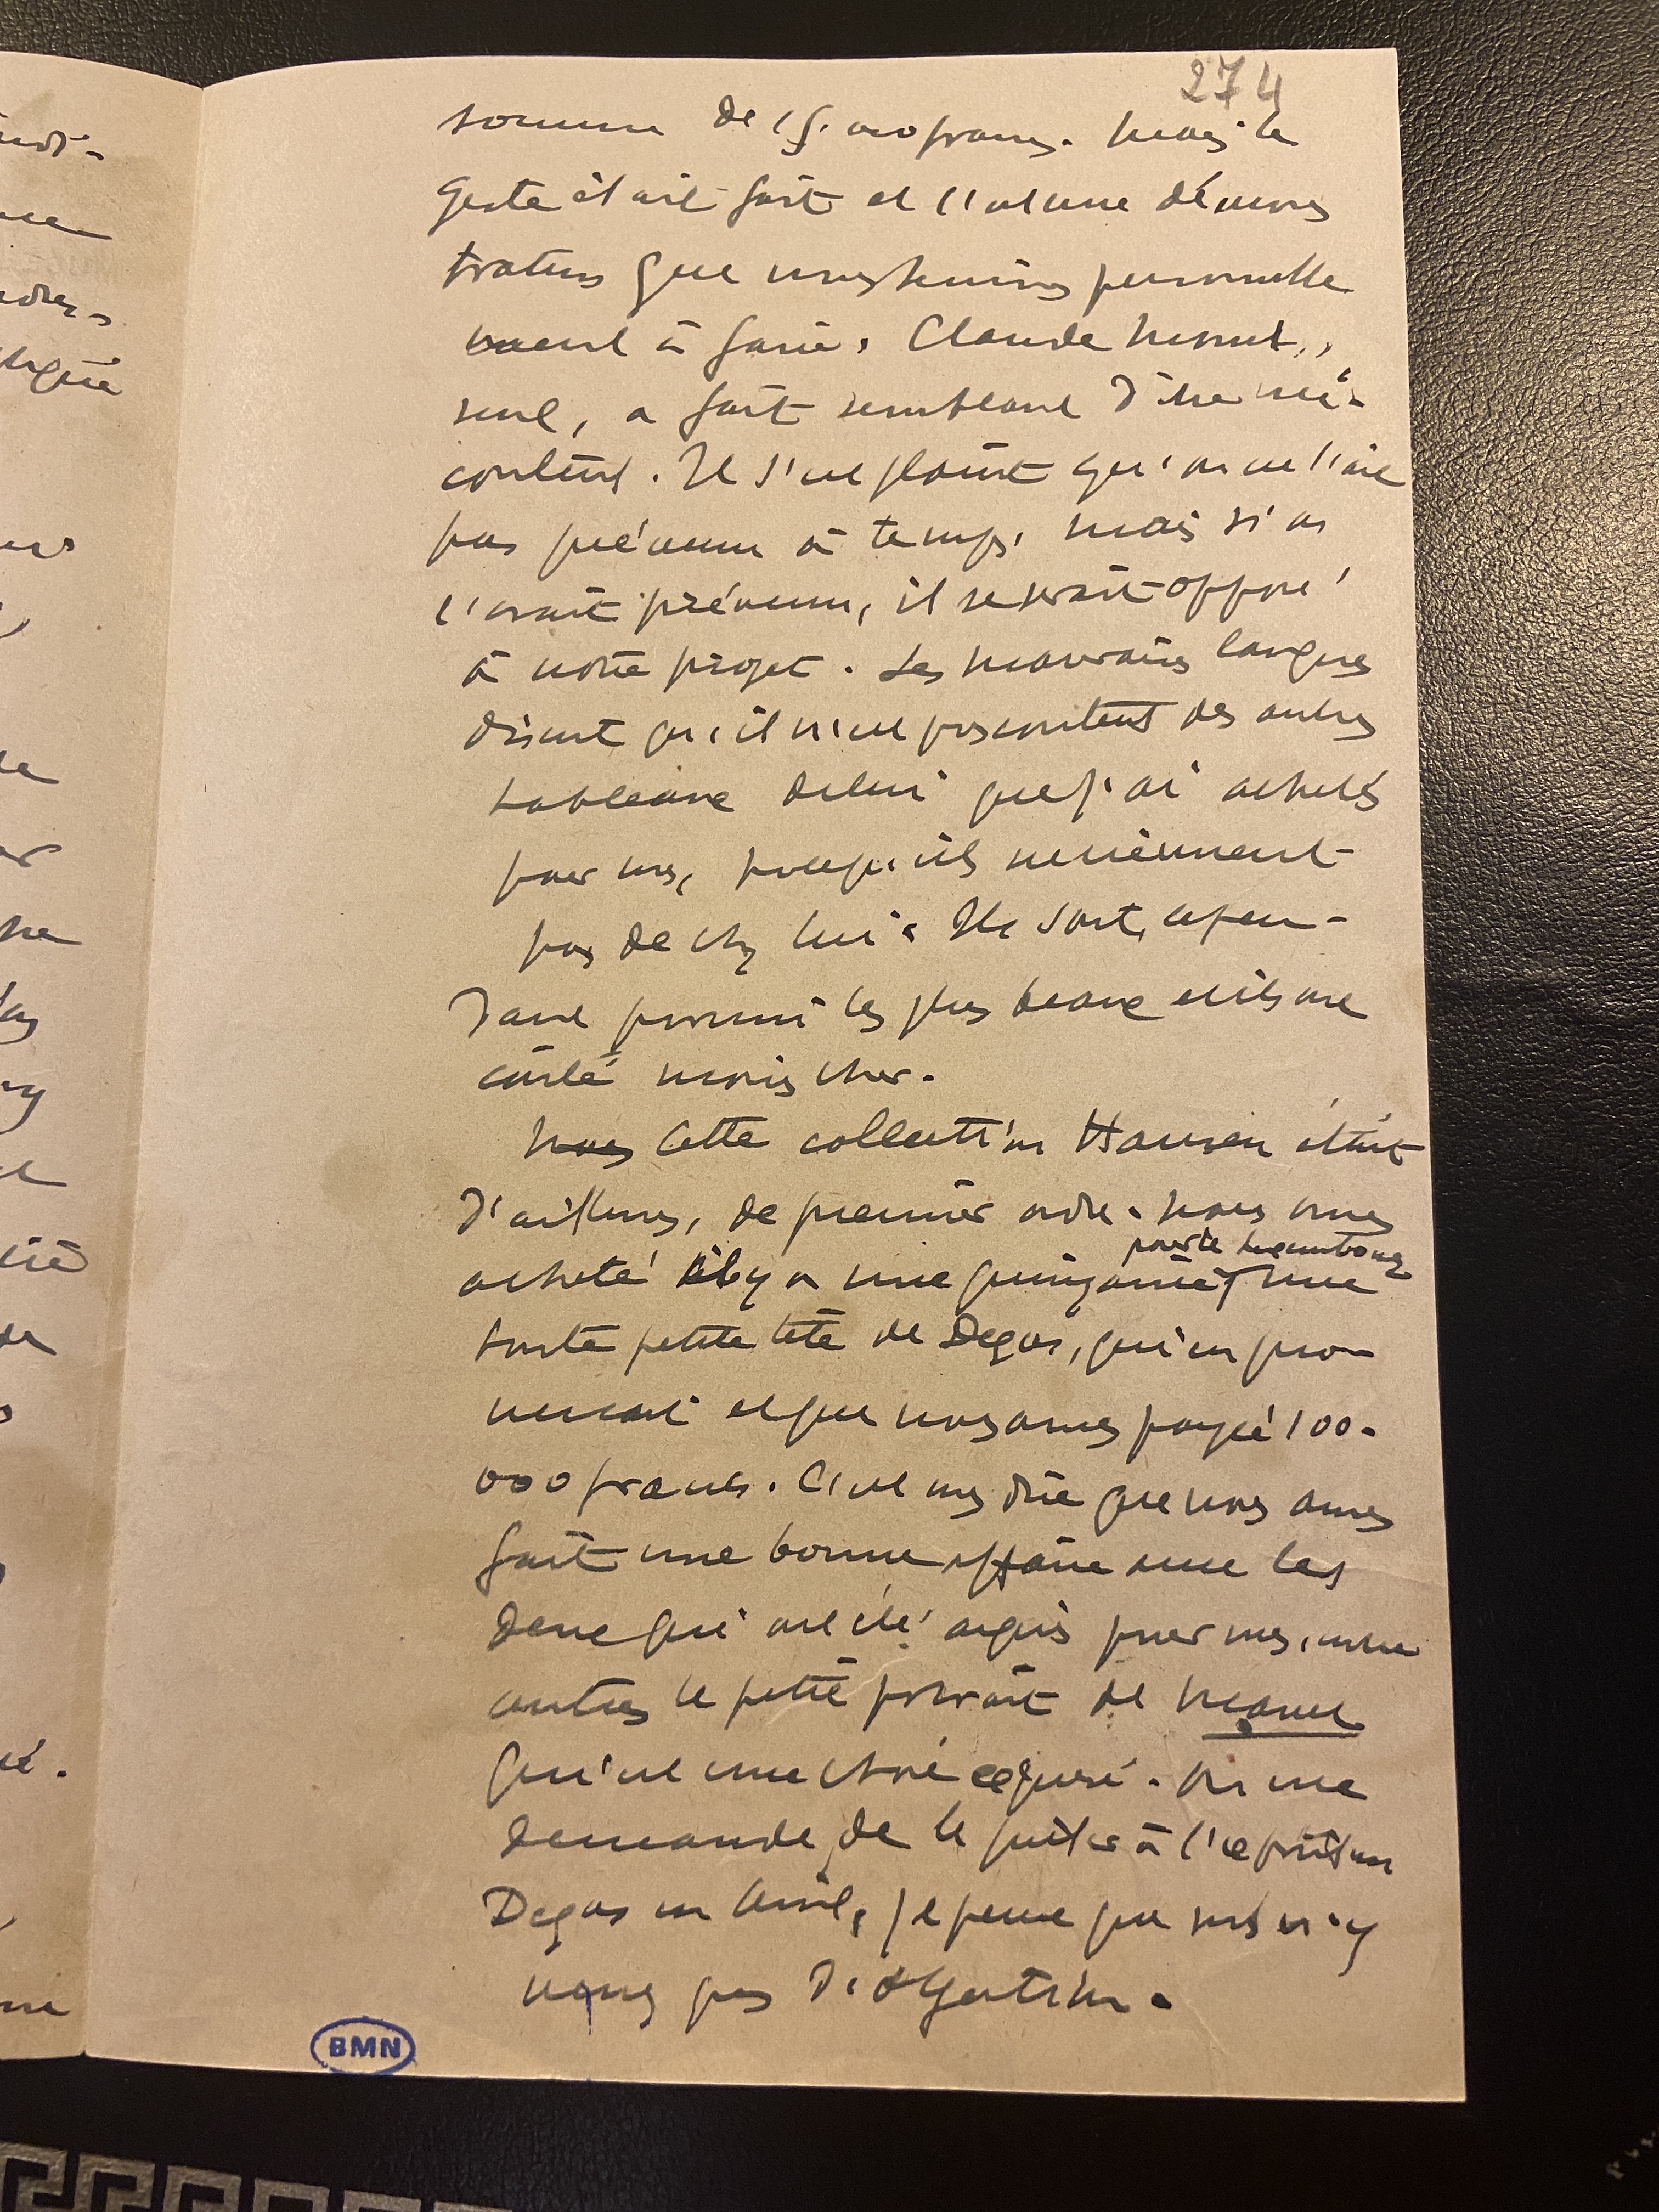 274
somme de 15.000 francs. Mais le
geste était fait et c'est une démons
tration que nous tenions personnelle
ment à faire. Claude Monet,
seul, a fait semblant d'être mé-
content. Il s'est plaint qu'on ne l'ait
pas prévenu à temps, mais si on
l'avait prévenu, il se serait opposé
à notre projet. Les mauvaises langues
disent qu'il n'est pas content des autres
tableaux de lui que j'ai achetés
pour vous, parce qu'ils ne viennent
pas de chez lui. Ils sont, cepen-
dant parmi les plus beaux et ils ont
coûté moins cher.
Cette collection Hansen était
d'ailleurs, de premier ordre. Nous avons
pour le Luxembourg
acheté il y a une quinzaine une
toute petite tête de Degas, qui en pro-
venait et que nous avons payé 100.
000 francs. C'est vous dire que vous avez
fait une bonne affaire avec les
deux qui ont été acquis pour vous, entre
autres le petit portrait de Manet
qui est une chose exquise. On me
demande de le prêter à l'exposition
Degas en Avril, je pense que vous n'y
voyez pas d'objection.
BMN
ligué